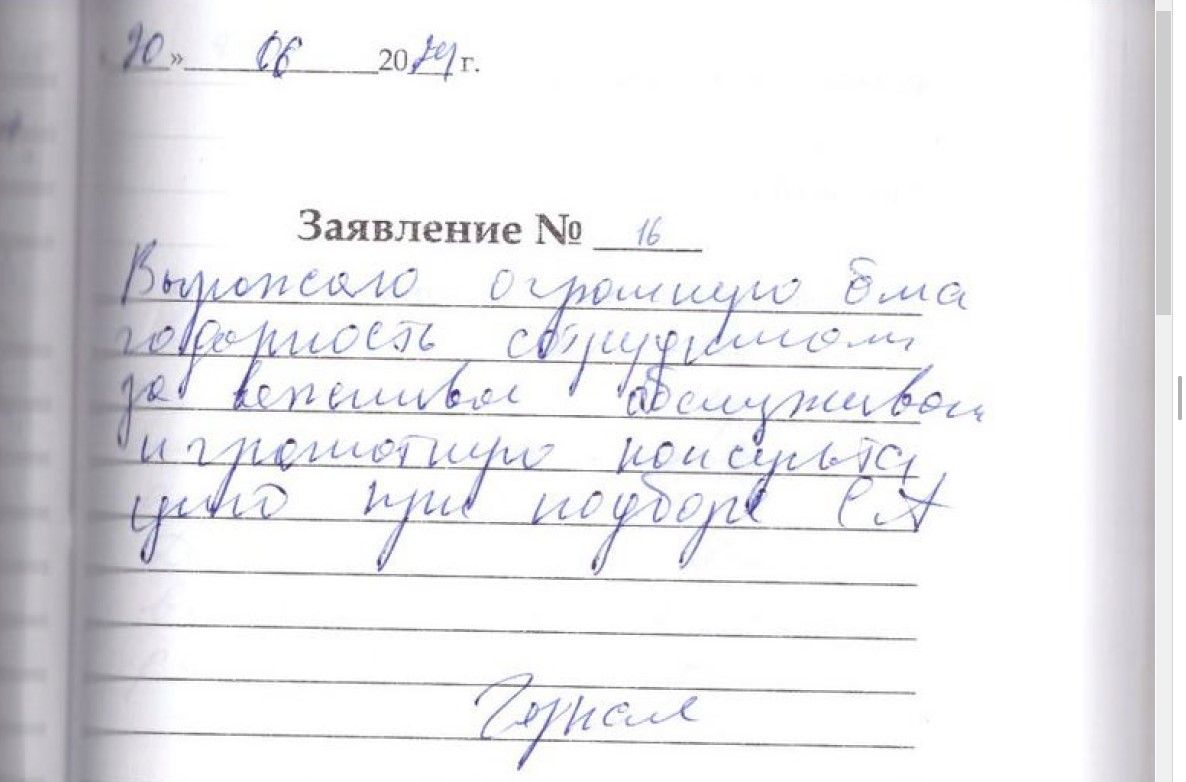 20» 06 2024 г.
Заявление № 16
Выражаю огромную бла
годарность сотрудникам
за вежливое обслуживан
и грамотную консульта
цию при подборе СА